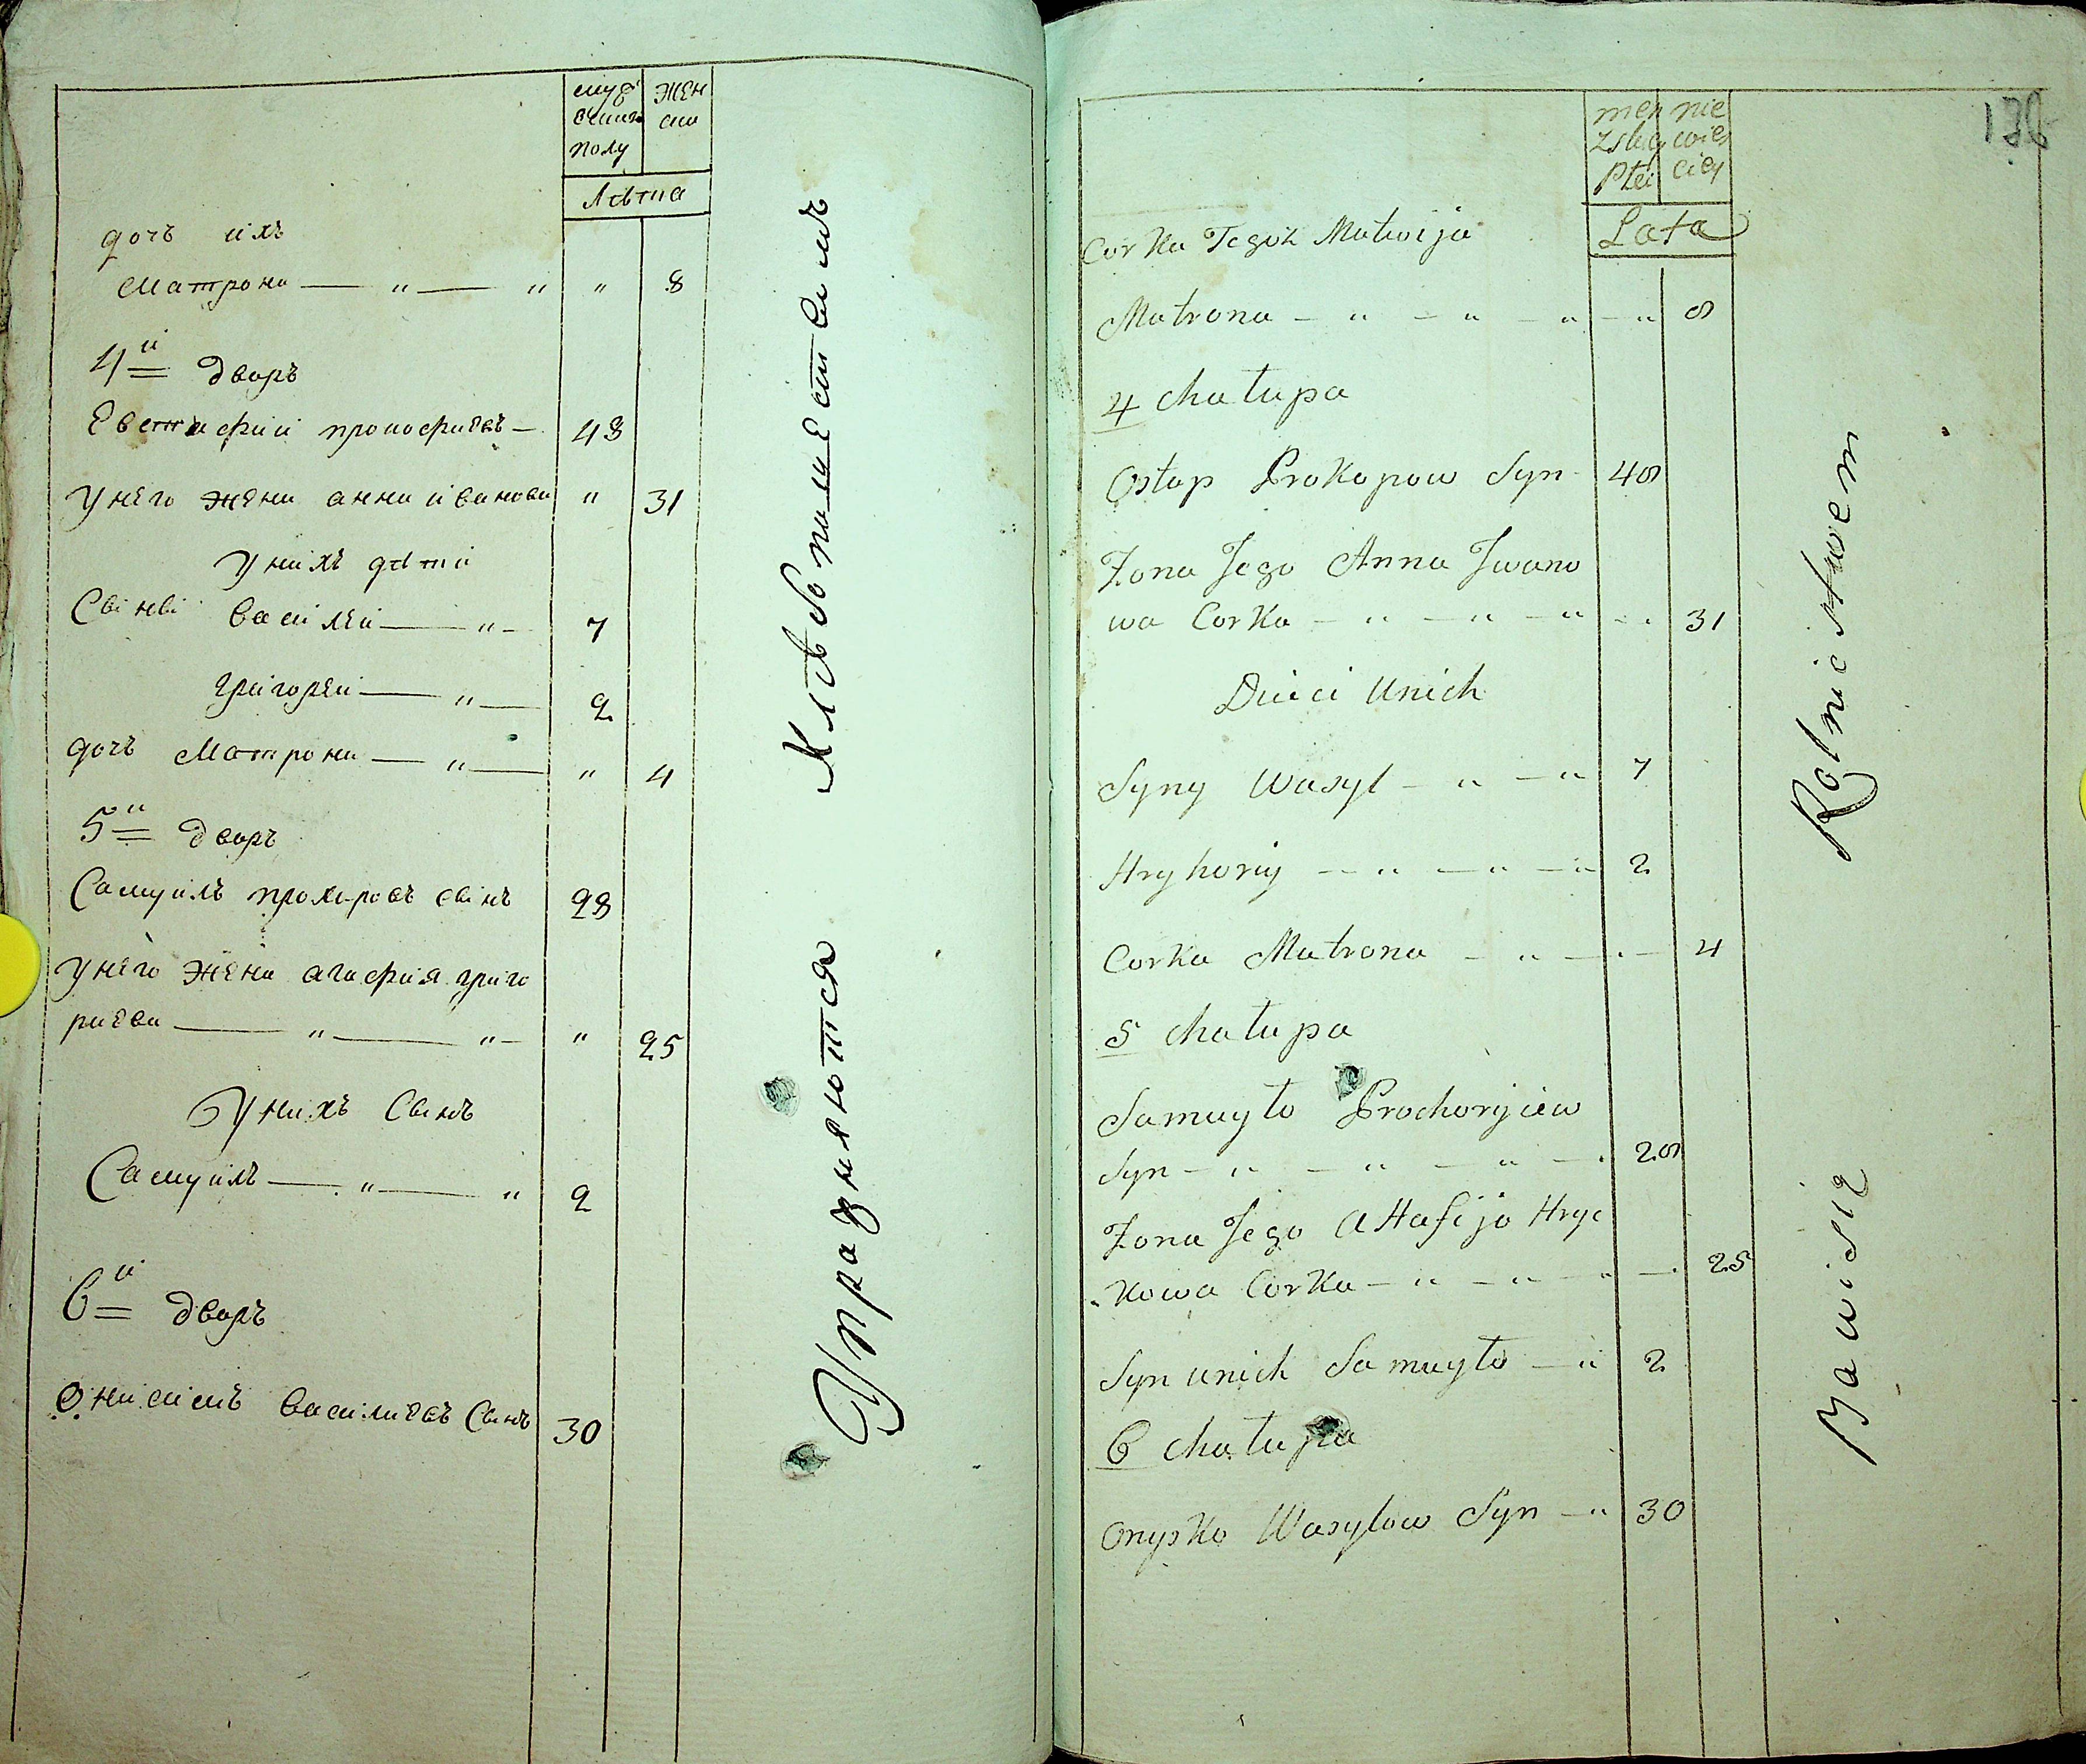 муж жен
ска
полу
Лѣта
дочъ ихъ
Матрона — " — " " 8
4й дворъ
Евстафий прокофиевъ — 48
У него жена анна иванова " 31
У нихъ дѣти
Сыны василей — " — 7
григорей — " — 2
дочъ Матрона — " — " 4
5й дворъ
Самуилъ прохоровъ сынъ 28
У него жена агафия григо
риева — " — " — " 25
У нихъ Сынъ
Самуилъ — " — " 2
6й дворъ
Онисимъ василиевъ Сынъ 30
Упразняются Хлѣбопашествомъ
138
męz nie
zskiey wies
Płci ciey
Lata
Corka Tegoż Matwija
Matrona — " — " — " — " 8
4 chałupa
Ostap Prokopow Syn 48
Żona Jego Anna Iwano
wa Corka — " — " — " — " 31
Dzieci Unich
Syny Wasyl — " — " 7
Hryhoriy — " — " — " 2
Corka Matrona — " — " — 4
5 chałupa
Samuyło Prochoryiew
Syn — " — " — " — " 28
Żona Jego AHafija Hryc
kowa Corka — " — " — " — 25
Syn unich Samuyło — " 2
6 chałupa
Onysko Wasylow Syn — " 30
Bawisię Rolnictwem